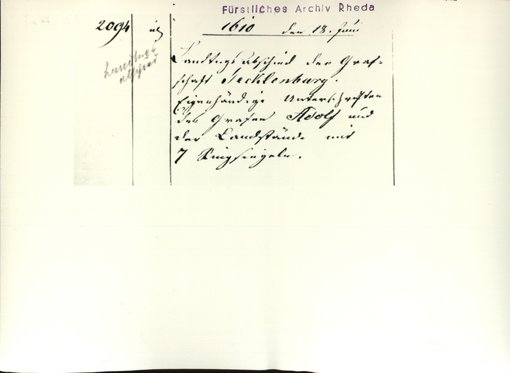 Fürstliches Archiv Rheda
2094
1610 den 18. Juni
Landtagsabschied der Graf-
schaft Tecklenburg.
Eigenhändige Unterschriften
des Grafen Adolf und
der Landstände mit
7 Ringsiegeln.